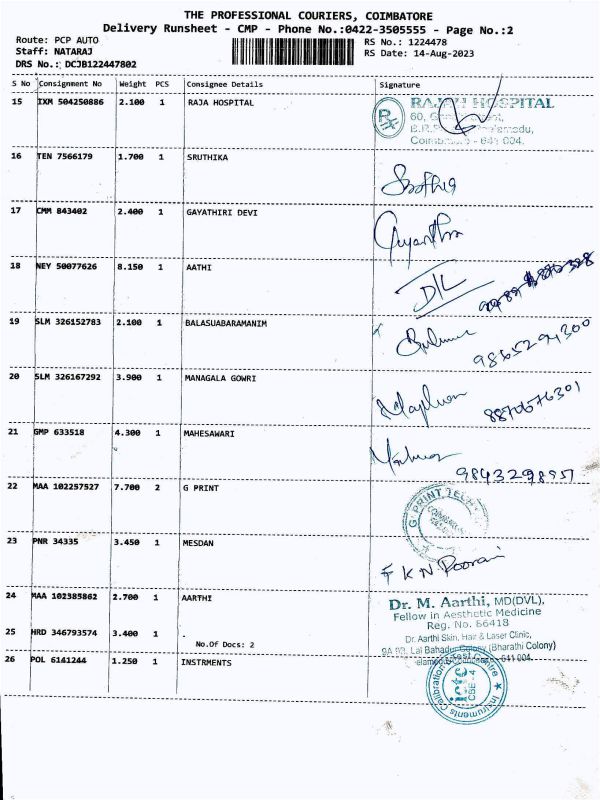 THE PROFESSIONAL COURIERS, COIMBATORE
Delivery Runsheet - CMP - Phone No.:0422-3505555 - Page No.:2
Route: PCP AUTO
RS No.: 1224478
Staff: NATARAJ
RS Date: 14-Aug-2023
DRS No.: DCJB122447802
S No Consignment No Weight PCS Consignee Details Signature
15 IXM 504250886 2.100 1 RAJA HOSPITAL
HOSPITAL
60,
- 641 004.
16 TEN 7566179 1.700 1 SRUTHIKA
17 CMM 843402 2.400 1 GAYATHIRI DEVI
18 NEY 50077626 8.150 1 AATHI
D/L
19 SLM 326152783 2.100 1 BALASUABARAMANIM
20 SLM 326167292 3.900 1 MANAGALA GOWRI
8870676301
21 GMP 633518 4.300 1 MAHESAWARI
22 MAA 102257527 7.700 2 G PRINT
23 PNR 34335 3.450 1 MESDAN
K N Poorani
24 MAA 102385862 2.700 1 AARTHI
Dr. M. Aarthi, MD(DVL),
Fellow in Aesthetic Medicine
Reg. No. 66418
Dr. Aarthi Skin, Hair & Laser Clinic,
25 HRD 346793574 3.400 1 .
No.Of Docs: 2
Lal Bahadur Colony (Bharathi Colony)
641 004.
26 POL 6141244 1.250 1 INSTRMENTS
Instruments Calibration & Test Centre
ictc
CBE - 4